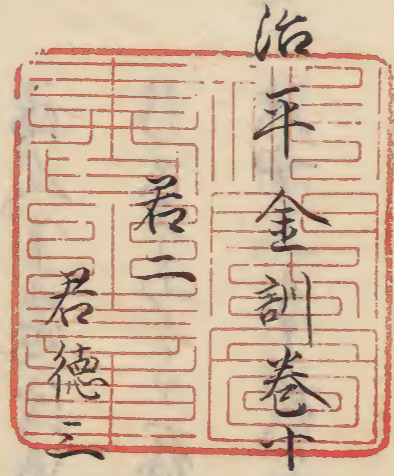 治平金訓卷十
君二
君德三